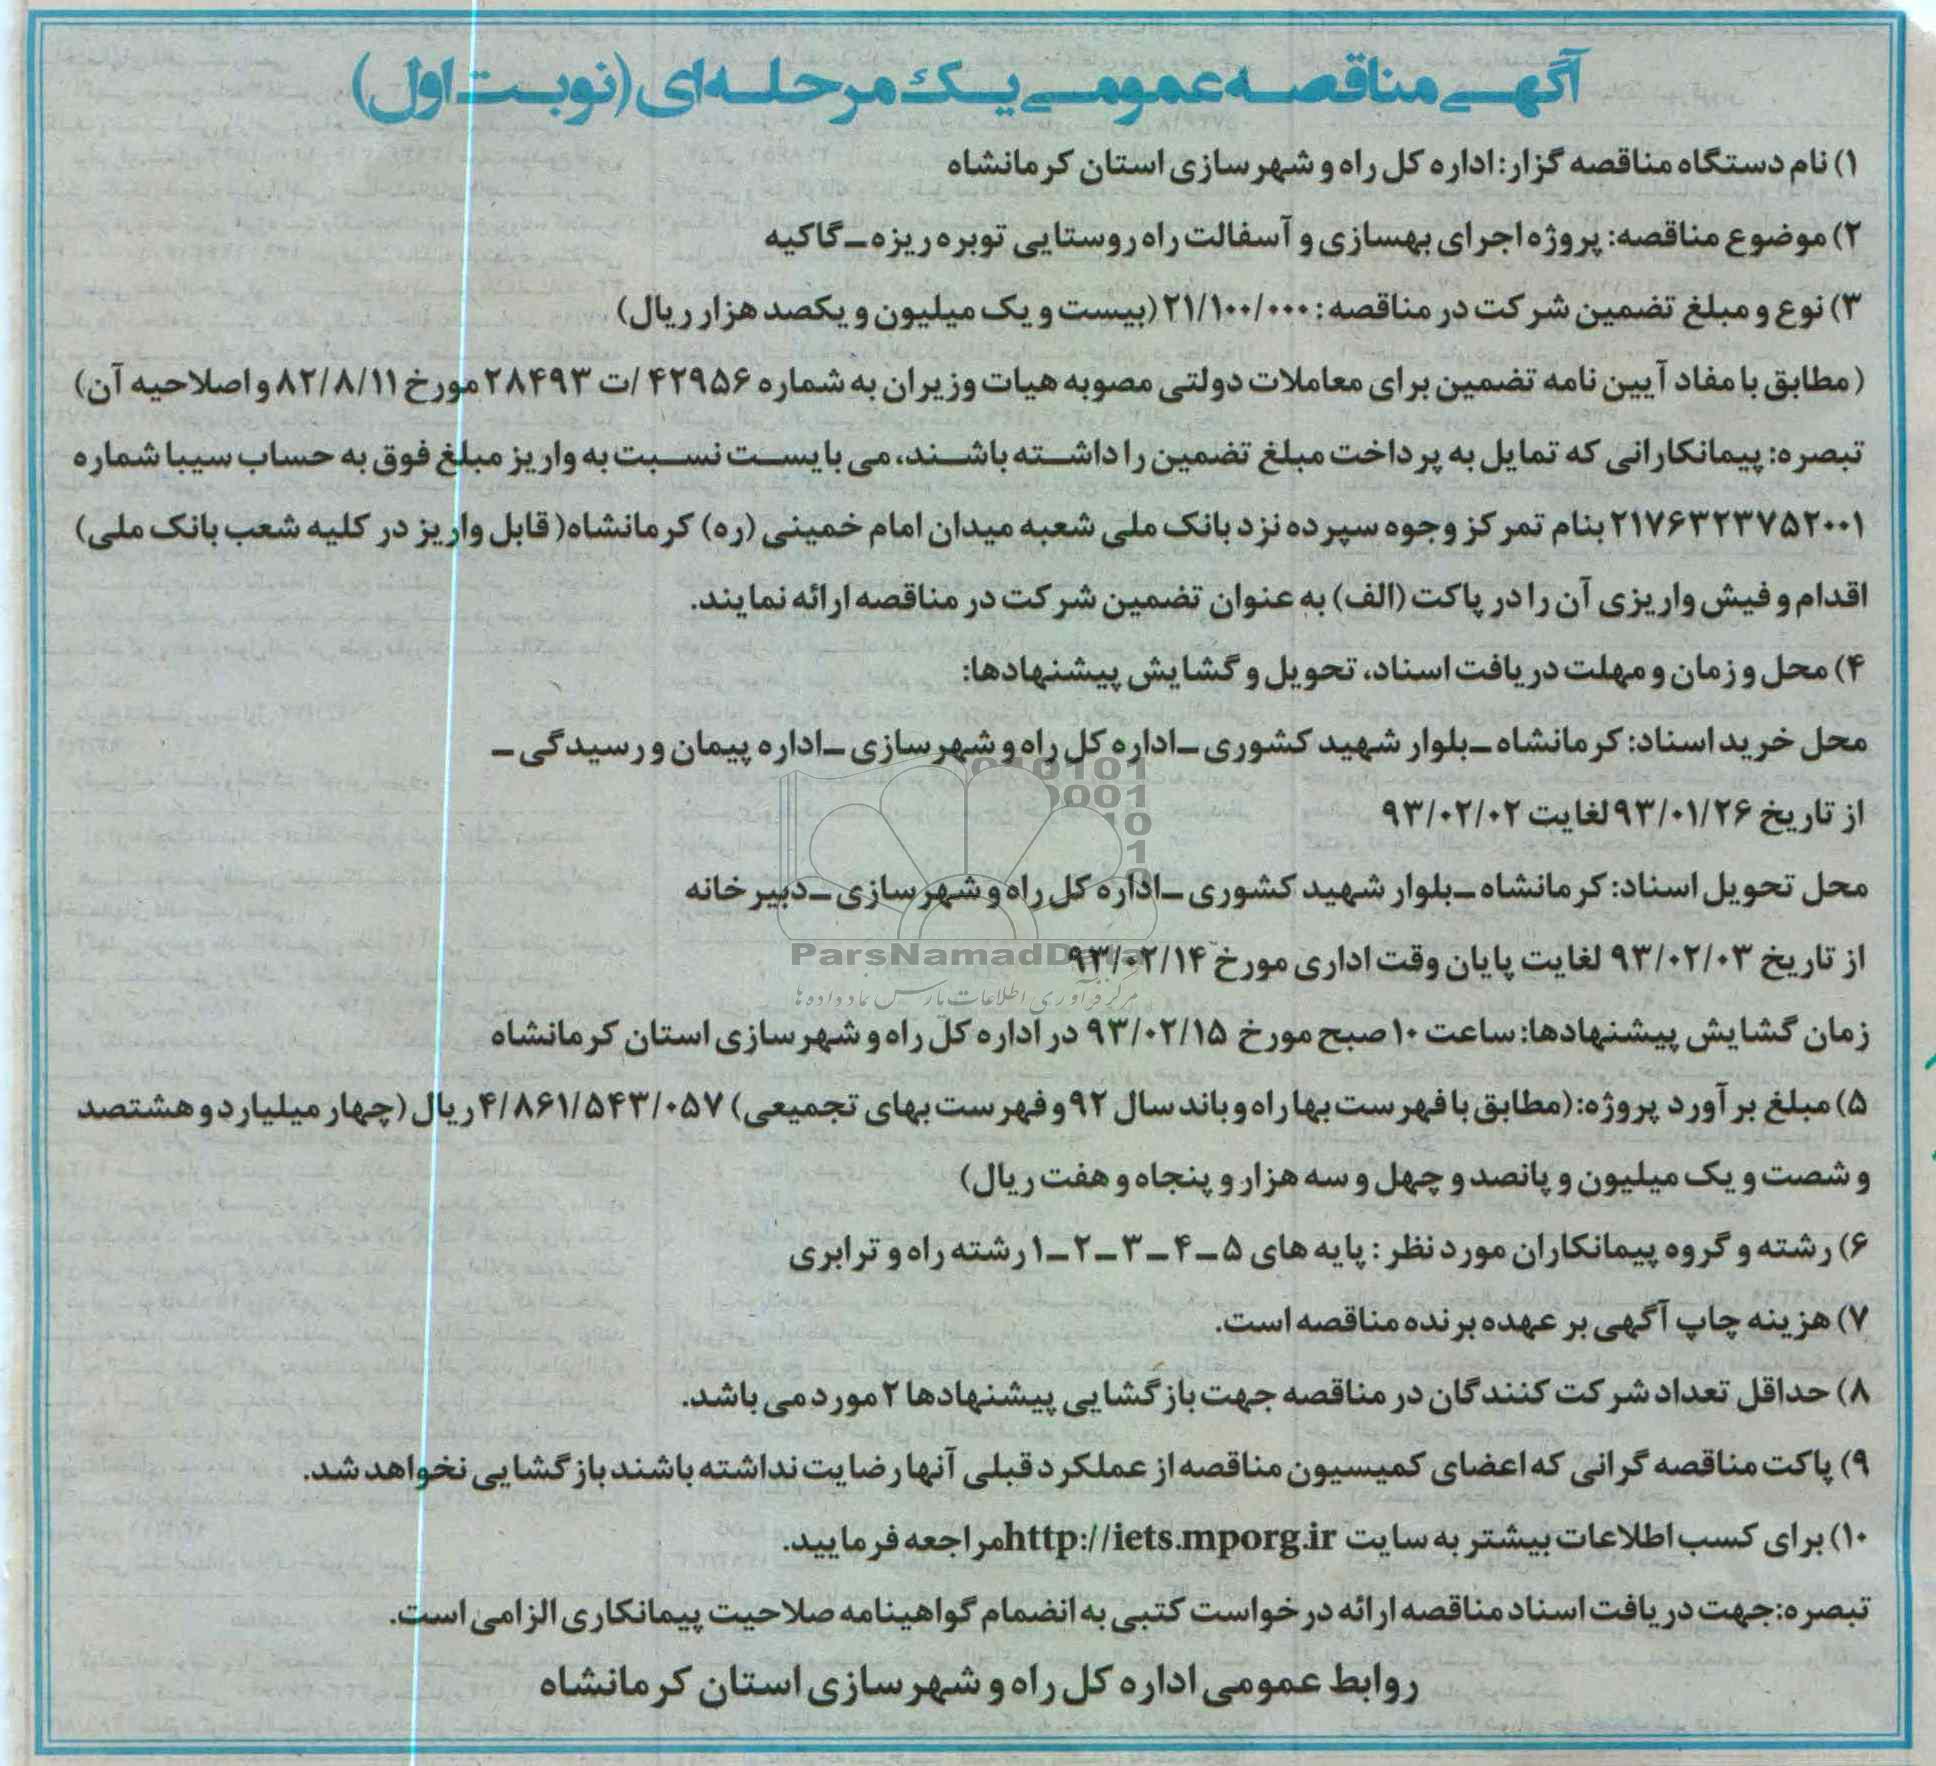 آگهی مناقصه عمومی یک مرحله‌ای (نوبت اول)
۱) نام دستگاه مناقصه گزار: اداره کل راه و شهرسازی استان کرمانشاه
۲) موضوع مناقصه: پروژه اجرای بهسازی و آسفالت راه روستایی توبره ریزه ـ گاکیه
۳) نوع و مبلغ تضمین شرکت در مناقصه : ۲۱/۱۰۰/۰۰۰ (بیست و یک میلیون و یکصد هزار ریال)
(مطابق با مفاد آیین نامه تضمین برای معاملات دولتی مصوبه هیات وزیران به شماره ۴۲۹۵۶ /ت ۲۸۴۹۳ مورخ ۸۲/۸/۱۱ و اصلاحیه آن)
تبصره: پیمانکارانی که تمایل به پرداخت مبلغ تضمین را داشته باشند، می بایست نسبت به واریز مبلغ فوق به حساب سیبا شماره
۲۱۷۶۳۲۳۷۵۲۰۰۱ بنام تمرکز وجوه سپرده نزد بانک ملی شعبه میدان امام خمینی (ره) کرمانشاه( قابل واریز در کلیه شعب بانک ملی)
اقدام و فیش واریزی آن را در پاکت (الف) به عنوان تضمین شرکت در مناقصه ارائه نمایند.
۴) محل و زمان و مهلت دریافت اسناد، تحویل و گشایش پیشنهادها:
محل خرید اسناد: کرمانشاه ـ بلوار شهید کشوری ـ اداره کل راه و شهرسازی ـ اداره پیمان و رسیدگی ـ
از تاریخ ۹۳/۰۱/۲۶ لغایت ۹۳/۰۲/۰۲
محل تحویل اسناد: کرمانشاه ـ بلوار شهید کشوری ـ اداره کل راه و شهرسازی ـ دبیرخانه
از تاریخ ۹۳/۰۲/۰۳ لغایت پایان وقت اداری مورخ ۹۳/۰۲/۱۴
ParsNamadData
مرکز فرآوری اطلاعات پارس نماد داده ها
زمان گشایش پیشنهادها: ساعت ۱۰ صبح مورخ ۹۳/۰۲/۱۵ در اداره کل راه و شهرسازی استان کرمانشاه
۵) مبلغ برآورد پروژه: (مطابق با فهرست بها راه و باند سال ۹۲ و فهرست بهای تجمیعی) ۴/۸۶۱/۵۴۳/۰۵۷ ریال (چهار میلیارد و هشتصد
و شصت و یک میلیون و پانصد و چهل و سه هزار و پنجاه و هفت ریال)
۶) رشته و گروه پیمانکاران مورد نظر : پایه های ۵ ـ ۴ ـ ۳ ـ ۲ ـ ۱ رشته راه و ترابری
۷) هزینه چاپ آگهی بر عهده برنده مناقصه است.
۸) حداقل تعداد شرکت کنندگان در مناقصه جهت بازگشایی پیشنهادها ۲ مورد می باشد.
۹) پاکت مناقصه گرانی که اعضای کمیسیون مناقصه از عملکرد قبلی آنها رضایت نداشته باشند بازگشایی نخواهد شد.
۱۰) برای کسب اطلاعات بیشتر به سایت http://iets.mporg.ir مراجعه فرمایید.
تبصره: جهت دریافت اسناد مناقصه ارائه درخواست کتبی به انضمام گواهینامه صلاحیت پیمانکاری الزامی است.
روابط عمومی اداره کل راه و شهرسازی استان کرمانشاه